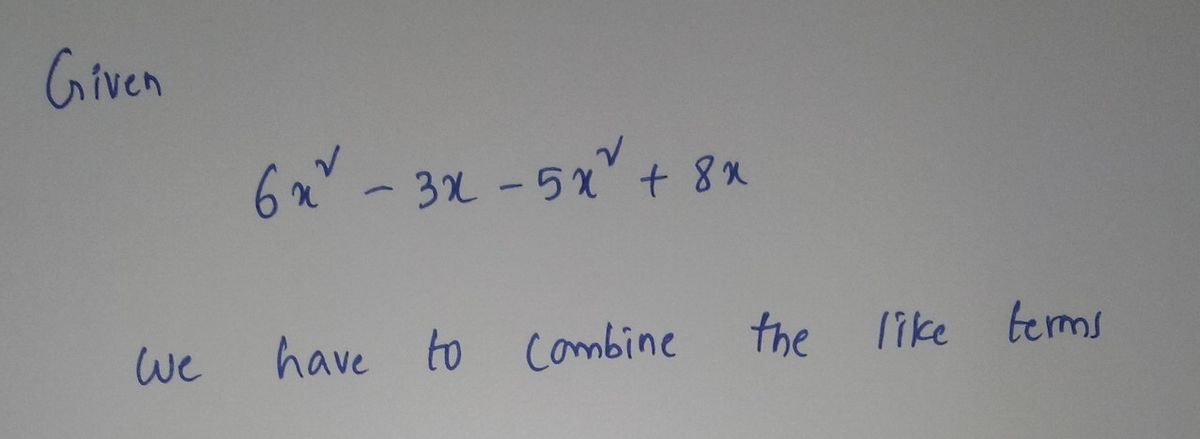 Given
6x² - 3x - 5x² + 8x
We have to combine the like terms